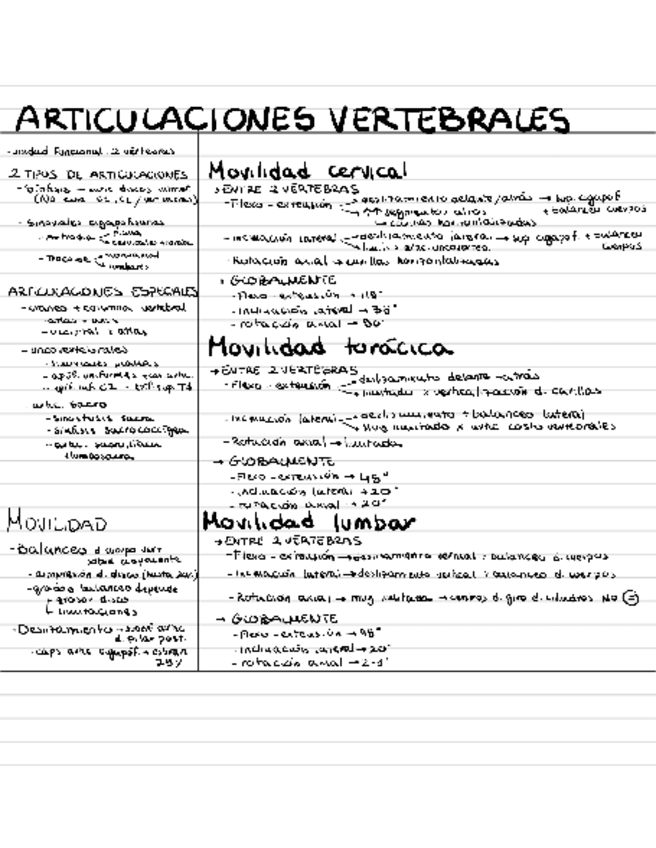 ARTICULACIONES VERTEBRALES
- unidad funcional: 2 vértebras
2 TIPOS DE ARTICULACIONES
- Sinostosales cigapofisarias
- Artrodia
- Trocoide
lumbares
ARTICULACIONES ESPECIALES
- cráneo + columna vertebral
- atlas - axis
- occipital - atlas
- uncovertebrales
- apof. unciformes + car. artic.
artic. sacro
- sinostosis sacra
- sínfisis sacrococcígea
- artic. sacroilíaca
lumbosacra
MOVILIDAD
- Balanceo d cuerpo vert
sobre adyacente
- compresión d. disco (hasta 20%)
- grados balanceo depende
grosor disco
limitaciones
- Deslizamiento → sobre artic
d. pilar post.
- caps artic cigapof. → estiran
25%
Movilidad cervical
→ ENTRE 2 VÉRTEBRAS
- Flexo - extensión → deslizamiento delante/atrás → sup. cigapof
+ balanceo cuerpos
↑↑ segmentos
carillas horizontalizadas
- Inclinación lateral → deslizamiento lateral → sup cigapof. + balanceo
cuerpos
limita artic. uncovert.
- Rotación axial → carillas horizontalizadas
→ GLOBALMENTE
- Flexo - extensión →
- Inclinación lateral →
- rotación axial →
Movilidad torácica
→ ENTRE 2 VÉRTEBRAS
- Flexo - extensión → deslizamiento delante - atrás
limitado x verticalización d. carillas
- Inclinación lateral → deslizamiento + balanceo lateral
Muy limitado x artic costo vertebrales
- Rotación axial → limitada
→ GLOBALMENTE
- Flexo - extensión → 45°
- inclinación lateral → 20°
- rotación axial → 20°
Movilidad lumbar
→ ENTRE 2 VÉRTEBRAS
- Flexo - extensión → deslizamiento vertical + balanceo d. cuerpos
- Inclinación lateral → deslizamiento vertical + balanceo d. cuerpos
- Rotación axial → muy limitada → centros d. giro d. cilindros NO =
→ GLOBALMENTE
- Flexo - extensión →
- inclinación lateral → 20°
- rotación axial →